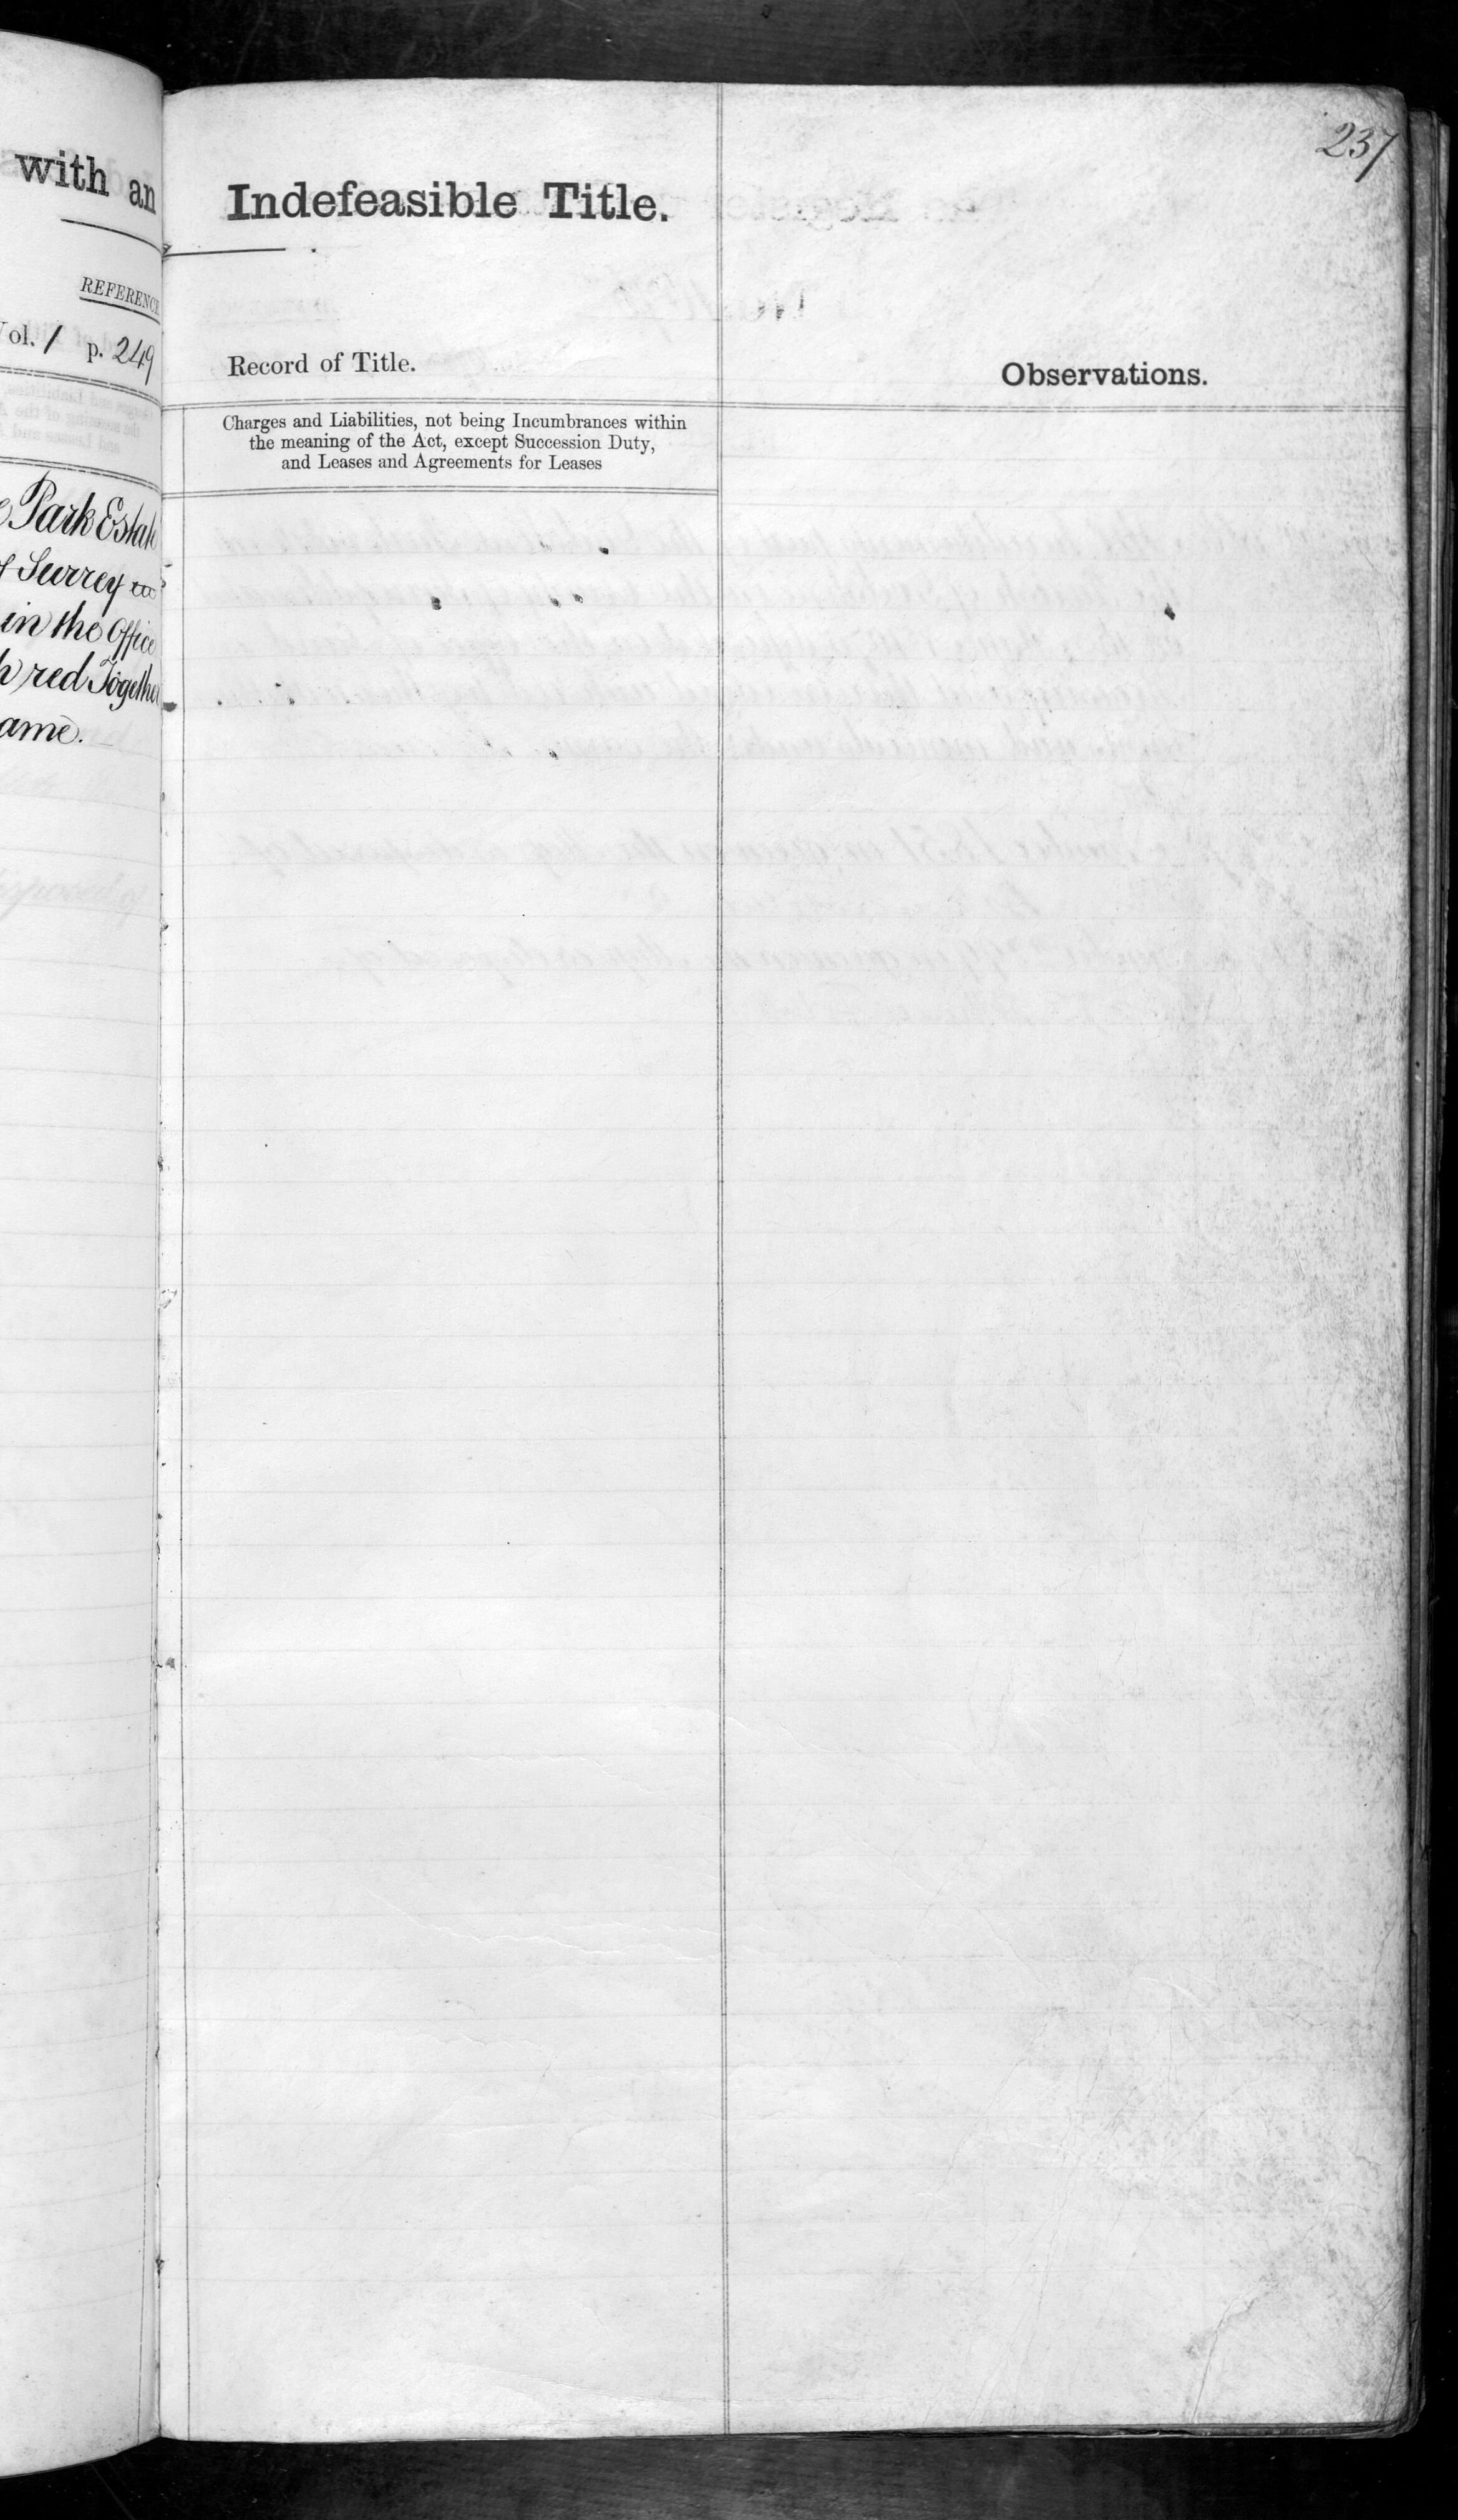 with an
REFERENCE
Vol. 1 p. 249
Park Estate
of Surrey
in the Office
red Together
ame.
237
Indefeasible Title.
Record of Title.
Observations.
Charges and Liabilities, not being Incumbrances within
the meaning of the Act, except Succession Duty,
and Leases and Agreements for Leases